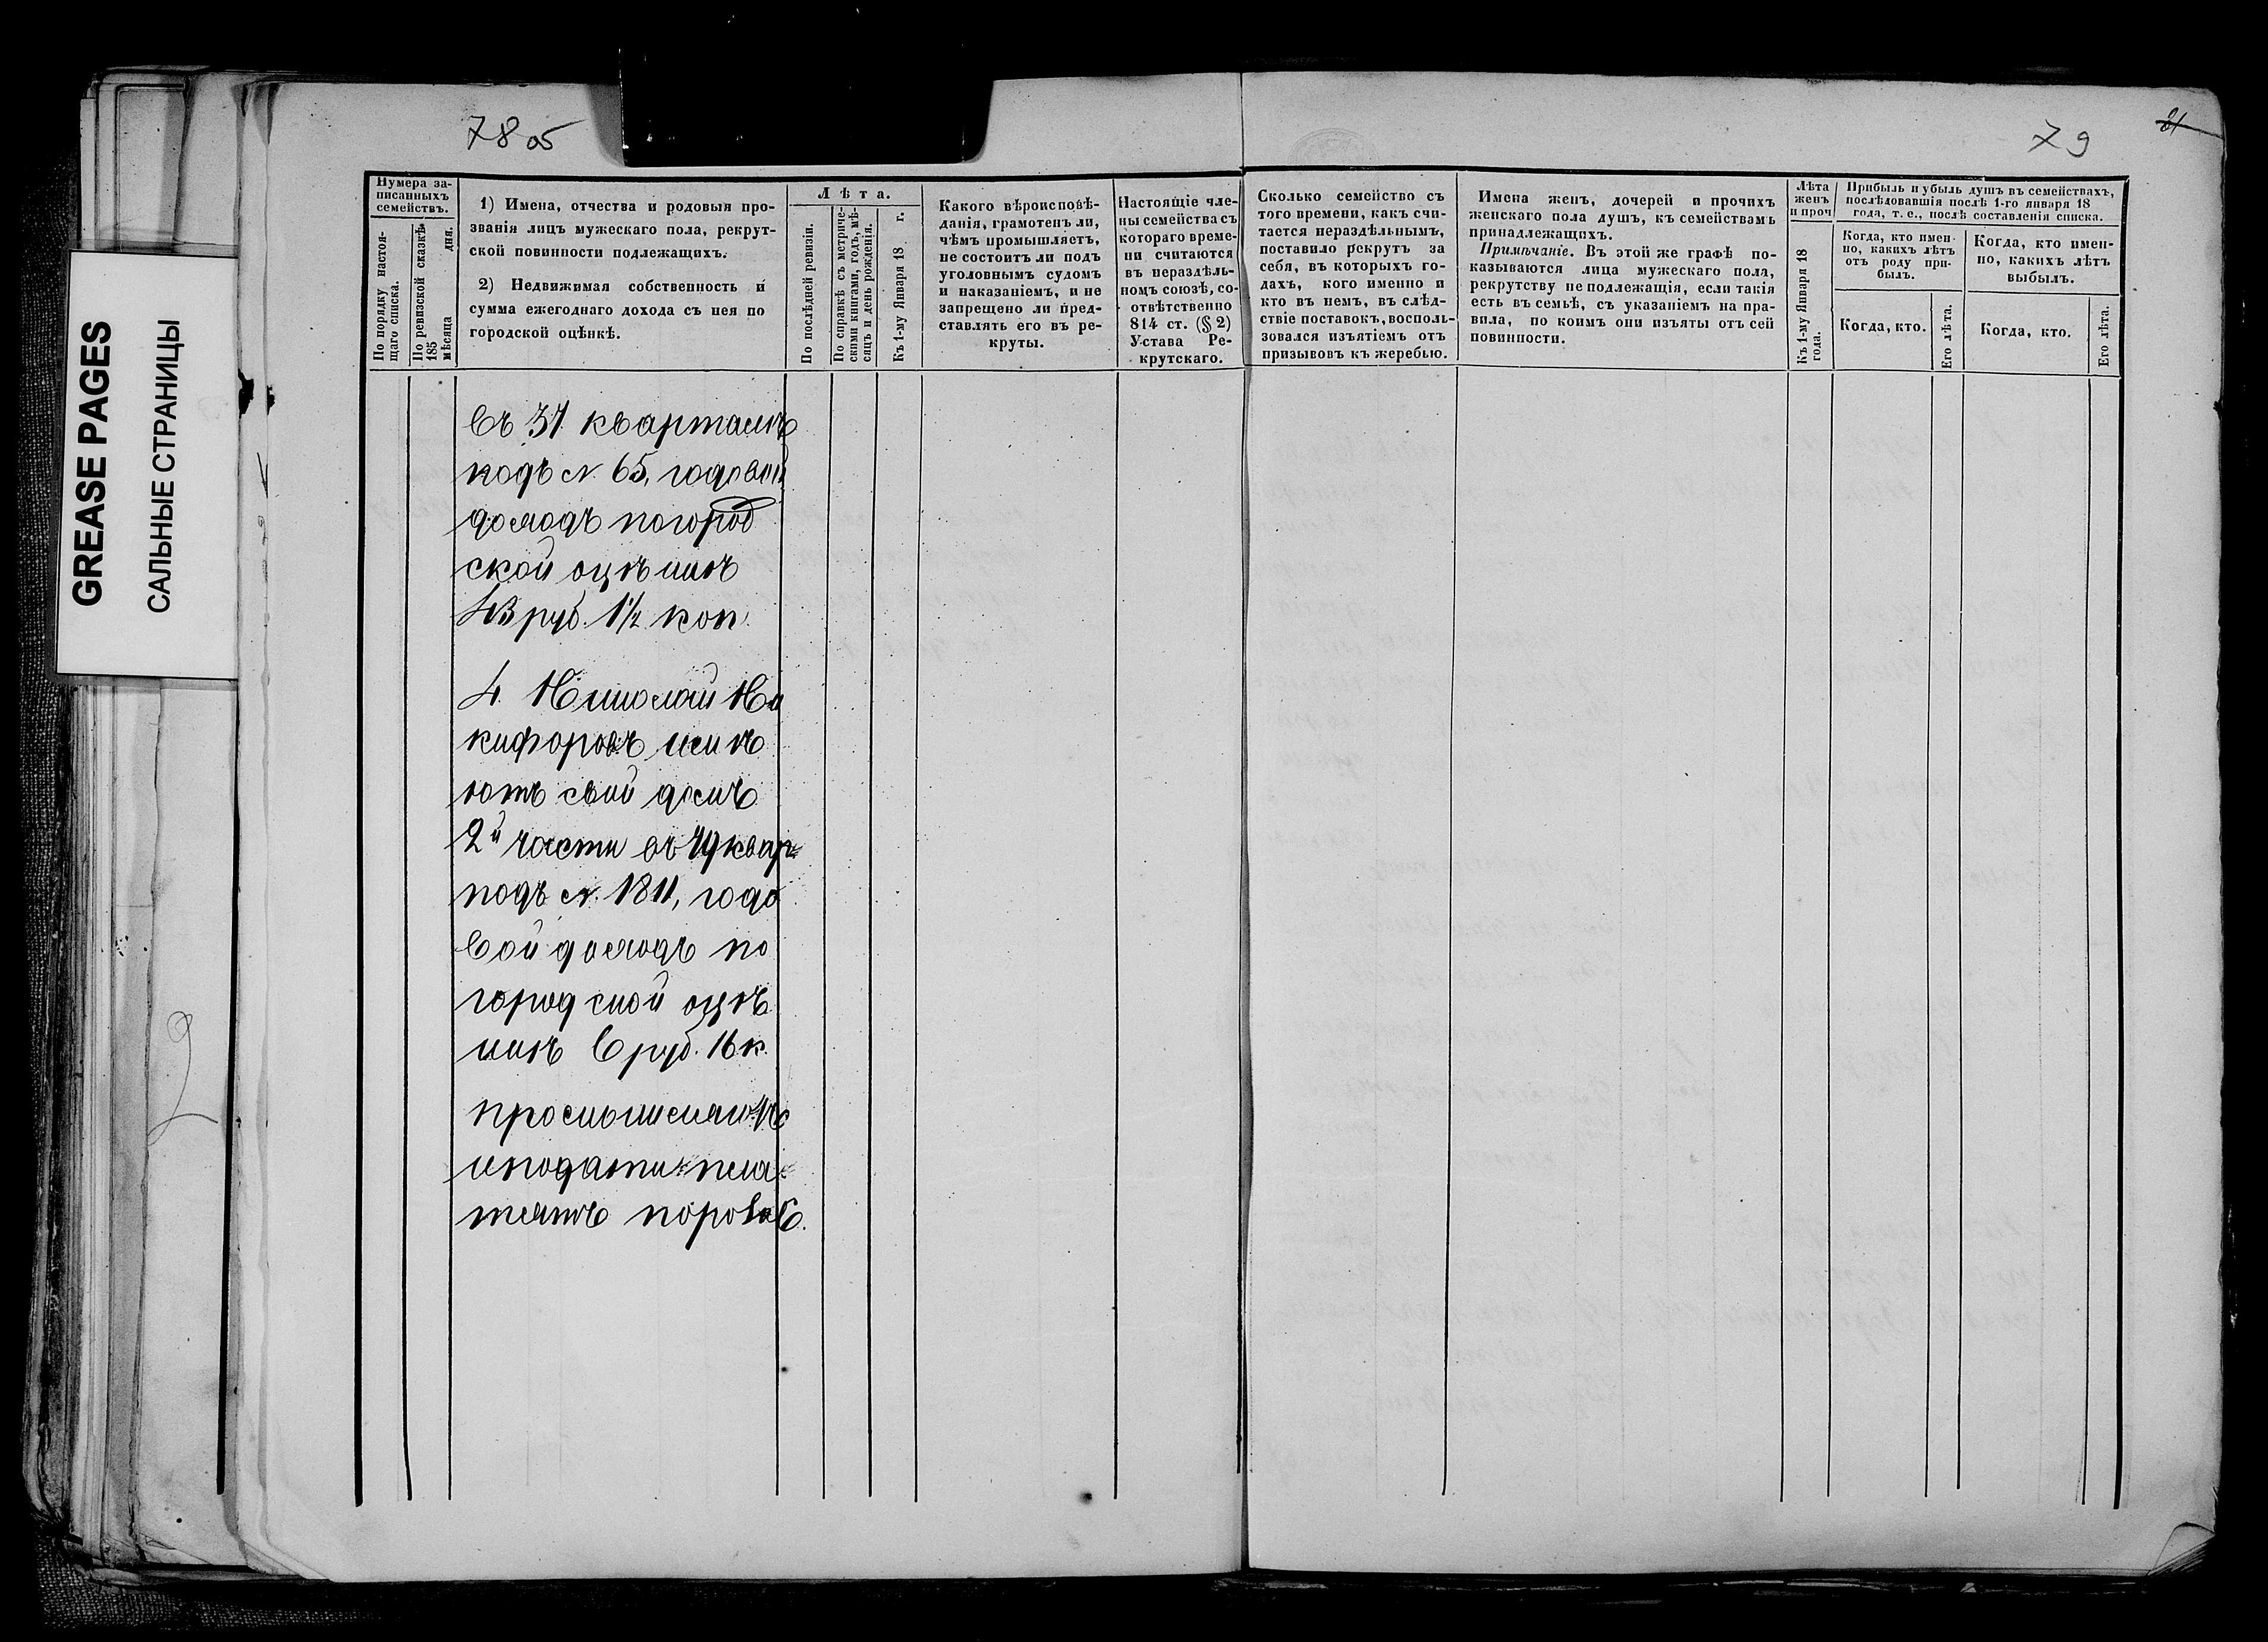 78 об
79
81
GREASE PAGES
САЛЬНЫЕ СТРАНИЦЫ
Нумера за-
писанныхъ
семействъ.
По порядку настоя-
щаго списка.
По ревизской сказкѣ
185
мѣсяца дня.
1) Имена, отчества и родовыя про-
званія лицъ мужескаго пола, рекрут-
ской повинности подлежащихъ.
2) Недвижимая собственность и
сумма ежегоднаго дохода съ нея по
городской оцѣнкѣ.
Лѣта.
По послѣдней ревизіи.
По справкѣ съ метриче-
скими книгами, годъ, мѣ-
сяцъ и день рожденія.
Къ 1-му Января 18 г.
Какого вѣроисповѣ-
данія, грамотенъ ли,
чѣмъ промышляетъ,
не состоитъ ли подъ
уголовнымъ судомъ
и наказаніемъ, и не
запрещено ли пред-
ставлять его въ ре-
круты.
Настоящіе чле-
ны семейства съ
котораго време-
ни считаются
въ нераздѣль-
номъ союзѣ, со-
отвѣтственно
814 ст. (§ 2)
Устава Ре-
крутскаго.
Сколько семейство съ
того времени, какъ счи-
тается нераздѣльнымъ,
поставило рекрутъ за
себя, въ которыхъ го-
дахъ, кого именно и
кто въ немъ, въ слѣд-
ствіе поставокъ, восполь-
зовался изъятіемъ отъ
призывовъ къ жеребью.
Имена женъ, дочерей и прочихъ
женскаго пола душъ, къ семействамъ
принадлежащихъ.
Примѣчаніе. Въ этой же графѣ по-
казываются лица мужескаго пола,
рекрутству не подлежащія, если такія
есть въ семьѣ, съ указаніемъ на пра-
вила, по коимъ они изъяты отъ сей
повинности.
Лѣта
женъ
и проч
Къ 1-му Января 18
года.
Прибыль и убыль душъ въ семействахъ,
послѣдовавшія послѣ 1-го января 18
года, т. е., послѣ составленія списка.
Когда, кто имен-
но, какихъ лѣтъ
отъ роду при-
былъ.
Когда, кто.
Его лѣта.
Когда, кто имен-
но, какихъ лѣтъ
выбылъ.
Когда, кто.
Его лѣта.
въ 37 кварталѣ
подъ N. 65, годовой
доходъ погород
ской оцѣнкѣ
43 руб. 1½ коп.
4. Николай Ни
кифоровъ имѣ
ютъ свой домъ
2й части въ 49 квар=
подъ N. 1811, годо
вой доходъ по
городской оцѣ
нкѣ 6 руб. 16 к.